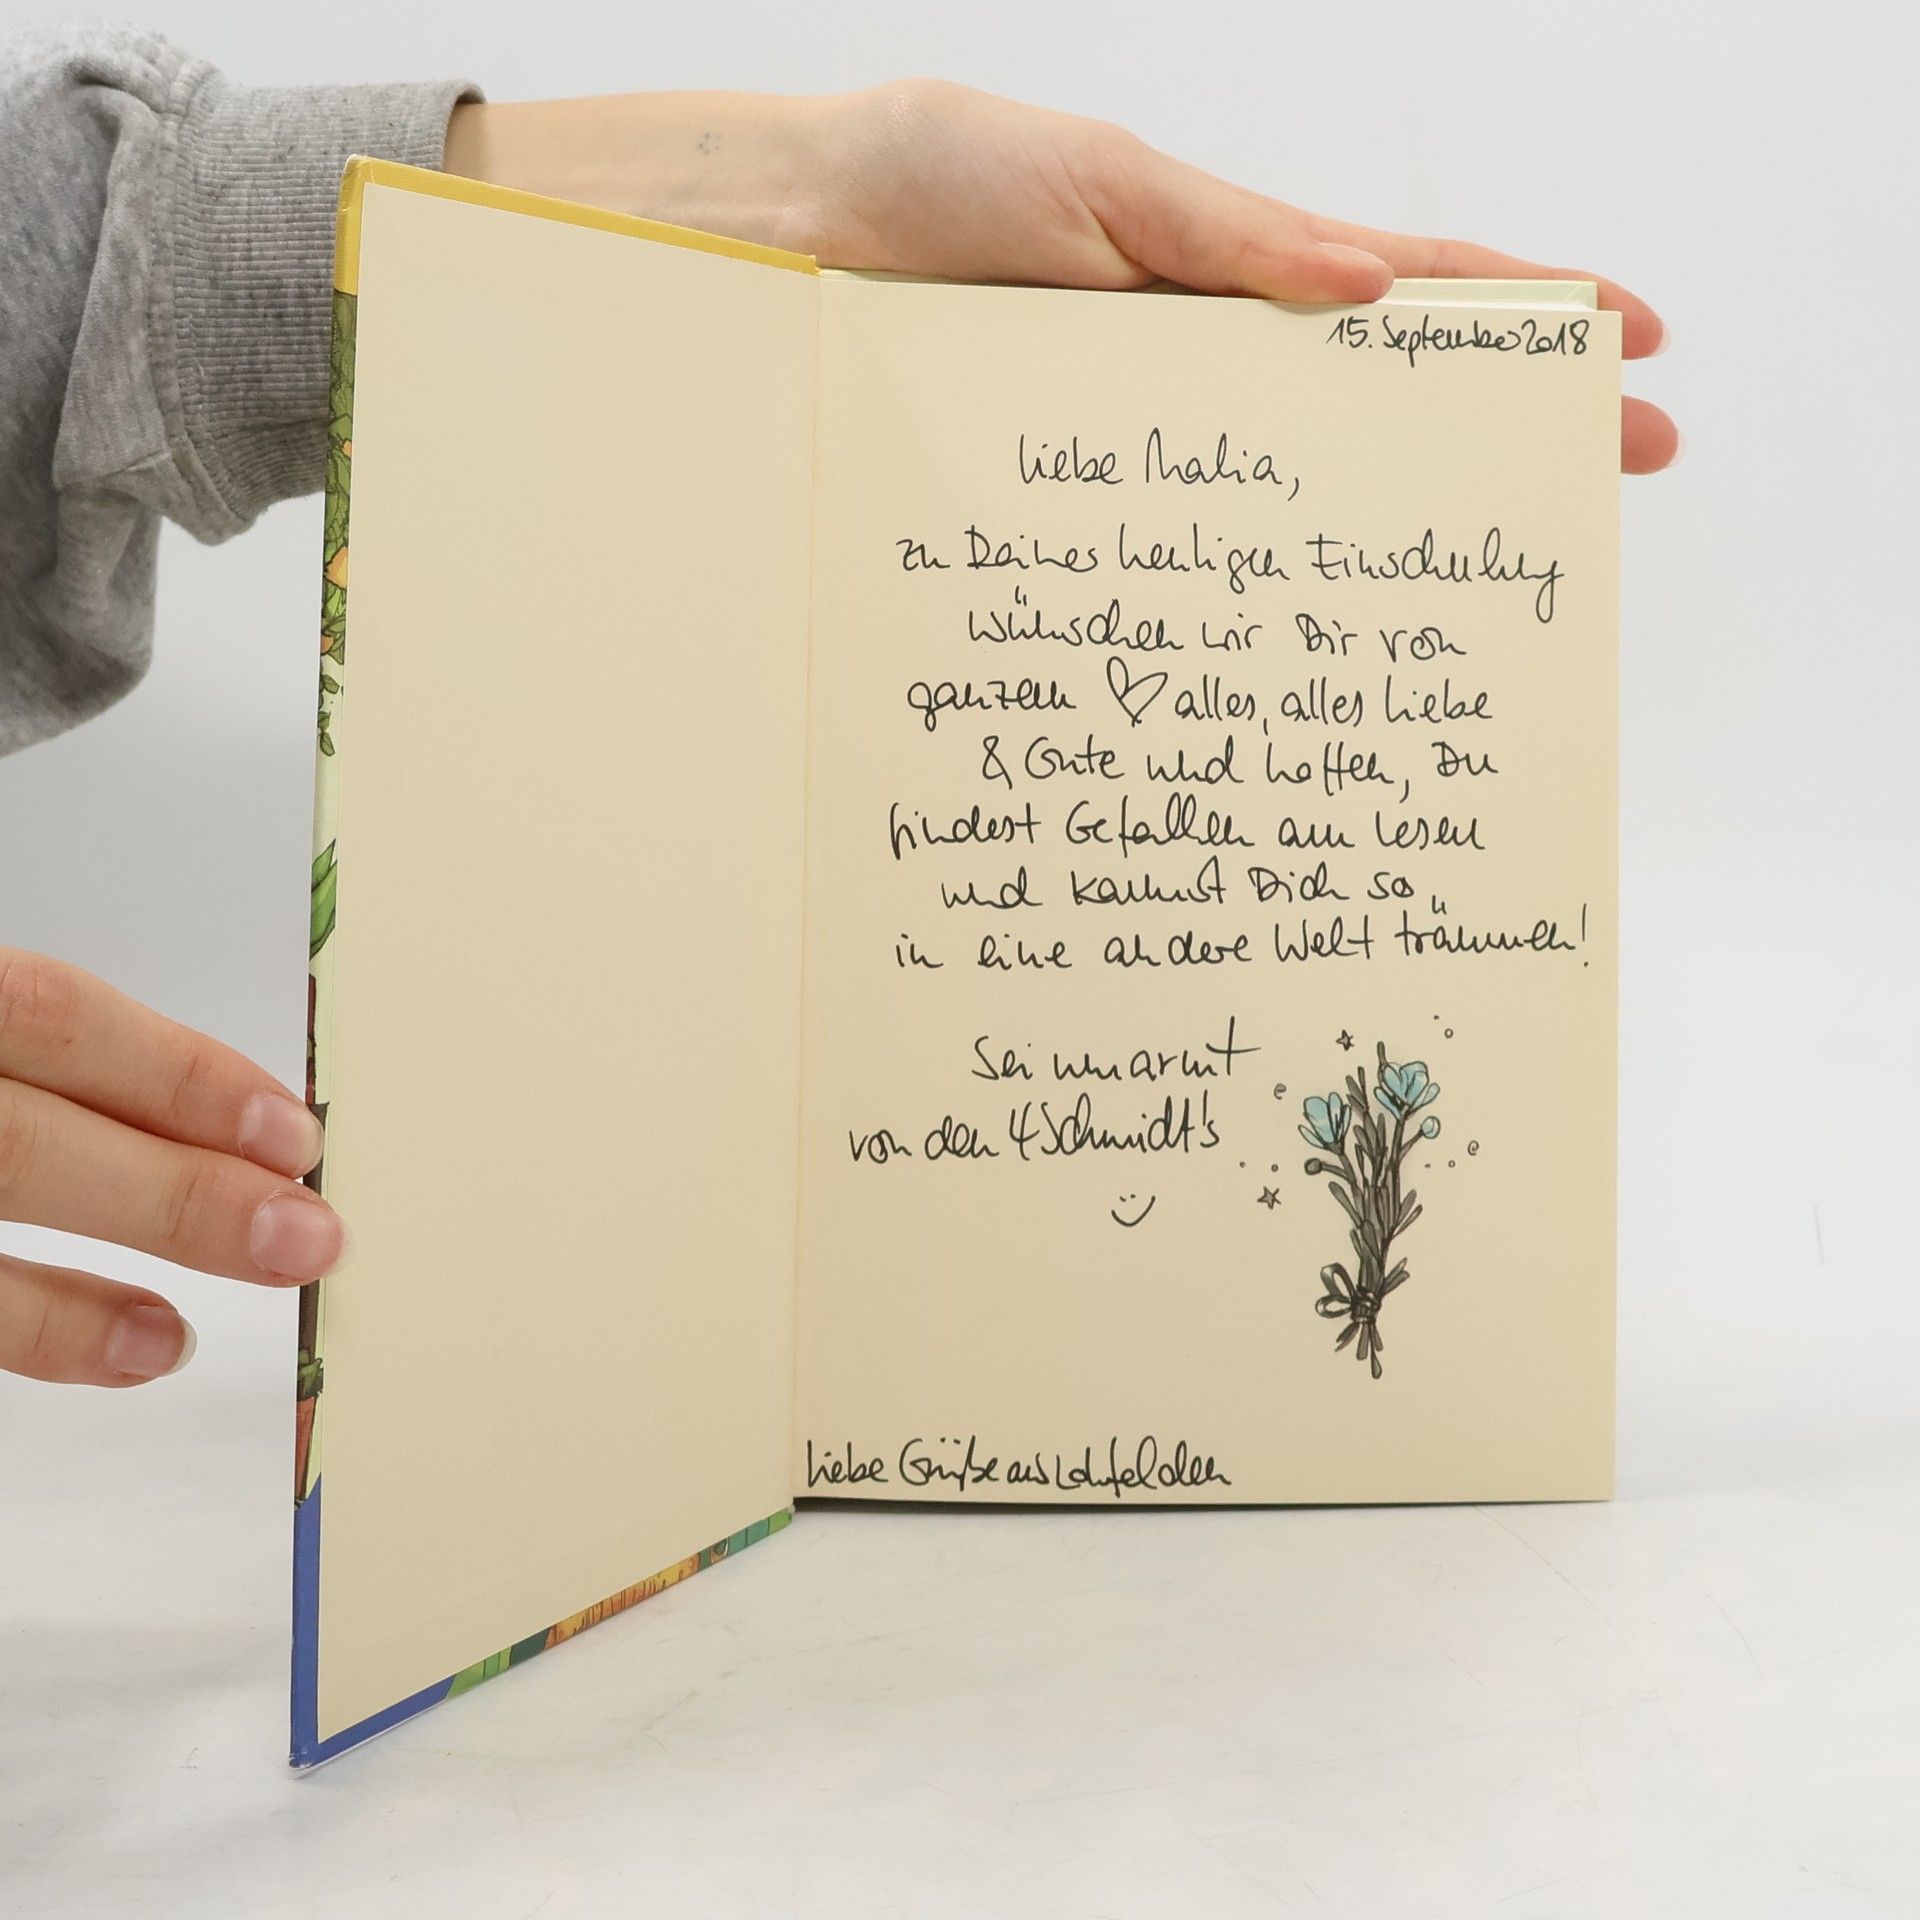 15. September 2018
Liebe Malia,
zu Deiner heutigen Einschulung
wünschen wir Dir von
ganzem ♡ alles, alles Liebe
& Gute und hoffen, Du
findest Gefallen am Lesen
und kannst Dich so
in eine andere Welt träumen!
Sei umarmt
von den 4 Schmidt's
Liebe Grüße aus Lohfelden